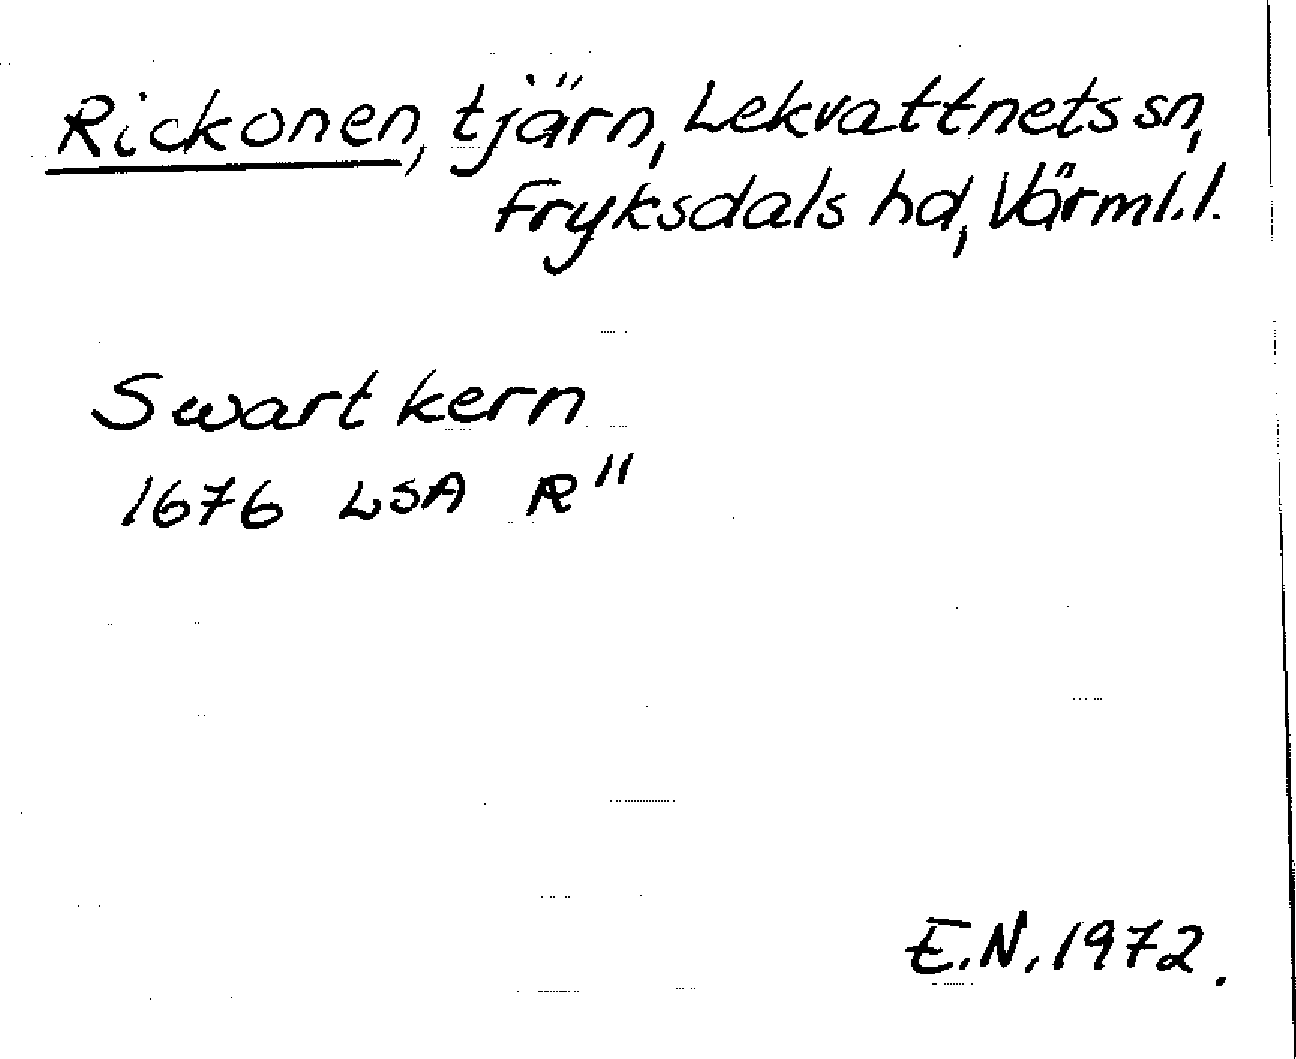 Rickonen, tjärn, Lekvattnets sn,
Fryksdals hd, Värml.l.
Swart kern
1676 LSA R"
E.N. 1972.